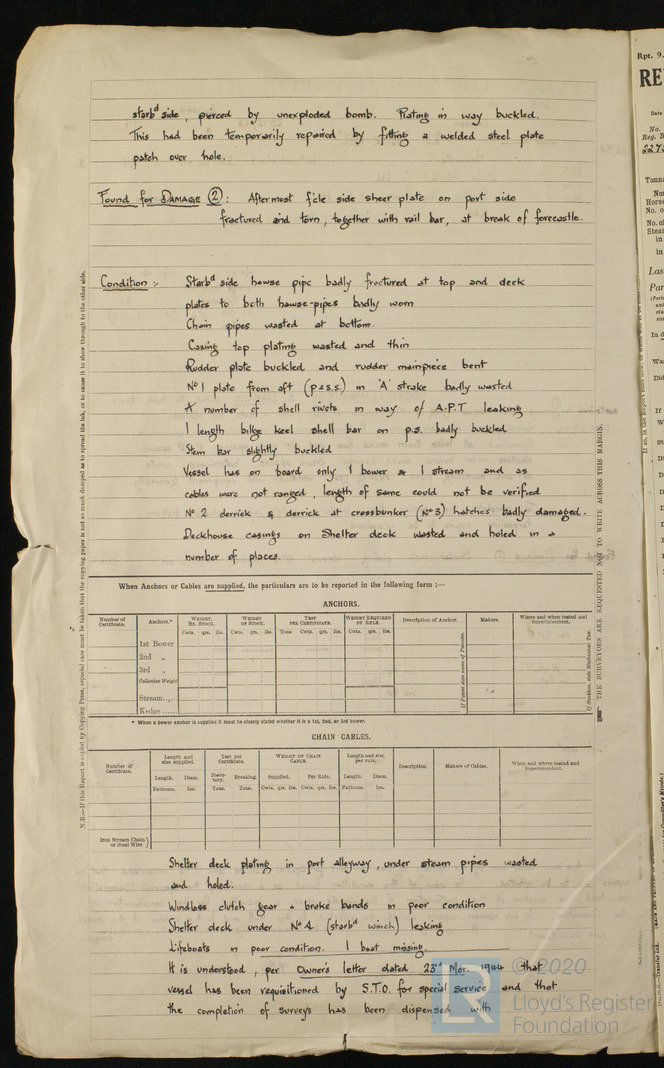 starbd side, pierced by unexploded bomb. Plating in way buckled.
This had been temporarily repaired by fitting a welded steel plate
patch over hole.
Found for DAMAGE (2): Aftermost f'cle side sheer plate on port side
fractured and torn, together with rail bar, at break of forecastle.
Condition :- Starbd side hawse pipe badly fractured at top and deck
plates to both hawse-pipes badly worn
Chain pipes wasted at bottom.
Casing top plating wasted and thin
Rudder plate buckled and rudder mainpiece bent
No 1 plate from aft (p & s.s.) in 'A' strake badly wasted
A number of shell rivets in way of A.P.T leaking
1 length bilge keel shell bar on p.s. badly buckled
Stem bar slightly buckled
Vessel has on board only 1 bower & 1 stream and as
cables were not ranged, length of same could not be verified
No 2 derrick & derrick at crossbunker (No 3) hatches badly damaged.
Deckhouse casings on Shelter deck wasted and holed in a
number of places.
When Anchors or Cables are supplied, the particulars are to be reported in the following form :—
ANCHORS.
Number of Certificate. Anchors.* WEIGHT, EX. STOCK. WEIGHT OF STOCK. TEST PER CERTIFICATE. WEIGHT REQUIRED BY RULE. Description of Anchor. Makers. Where and when tested and Superintendent.
Cwts. qrs. lbs. Cwts. qrs. lbs. Tons Cwts. qrs. lbs. Cwts. qrs. lbs.
1st Bower
2nd „
3rd „
Collective Weight
Stream
Kedge
* When a bower anchor is supplied it must be clearly stated whether it is a 1st, 2nd, or 3rd bower.
CHAIN CABLES.
Number of Certificate. Length and size supplied. Test per Certificate. WEIGHT OF CHAIN CABLE. Length and size per rule. Description. Makers of Cables. When and where tested and Superintendent.
Length. Diam. Statutory. Breaking. Supplied. Per Rule. Length. Diam.
Fathoms. Ins. Tons. Tons. Cwts. qrs. lbs. Cwts. qrs. lbs. Fathoms. Ins.
Iron Stream Chain or Steel Wire
Shelter deck plating in port alleyway, under steam pipes wasted
and holed.
Windlass clutch gear & brake bands in poor condition
Shelter deck under No 4 (starbd winch) leaking
Lifeboats in poor condition. 1 boat missing.
It is understood, per Owner's letter dated 23rd Mar. 1944 that
vessel has been requisitioned by S.T.O. for special service and that
the completion of surveys has been dispensed with
N.B.—If this Report is copied by Copying Press, especial care must be taken that the copying paper is not so much damped as to spread the ink, or to cause it to show through to the other side.
THE SURVEYORS ARE REQUESTED NOT TO WRITE ACROSS THIS MARGIN.
Rpt. 9.
© 2020
Lloyd's Register
Foundation